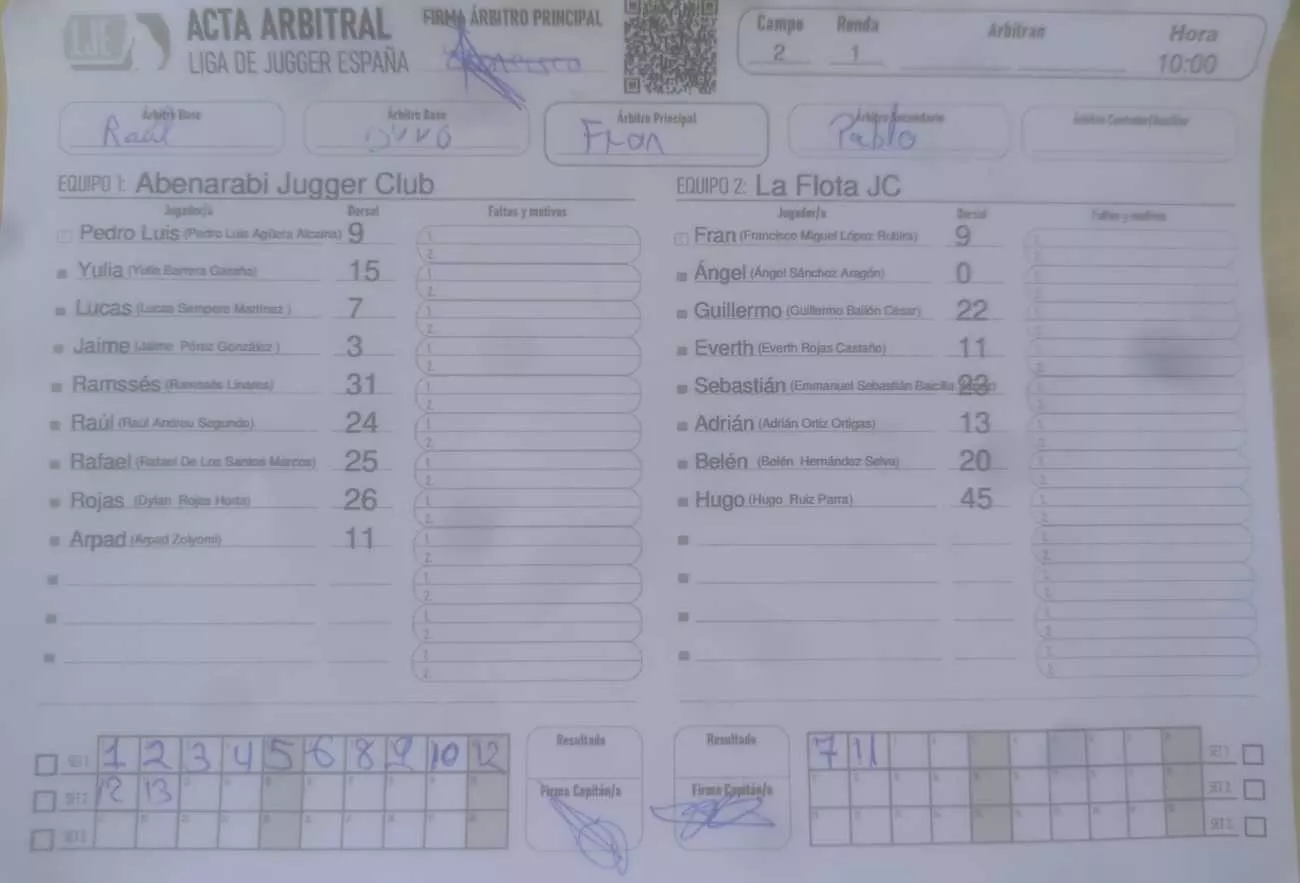 LJE
ACTA ARBITRAL
LIGA DE JUGGER ESPAÑA
FIRMA ÁRBITRO PRINCIPAL
Campo
2
Ronda
1
Arbitran
Hora
10:00
Árbitro Base
Raúl
Árbitro Base
Árbitro Principal
Fran
Árbitro Secundario
Pablo
EQUIPO 1: Abenarabi Jugger Club
Jugador/a Dorsal Faltas y motivos
Pedro Luis (Pedro Luis Agüera Alcaina) 9
Yulia (Yulia Barrera Gazaña) 15
Lucas (Lucas Sempere Martínez ) 7
Jaime (Jaime Pérez González ) 3
Ramssés (Ramssés Linares) 31
Raúl (Raúl Andreu Segundo) 24
Rafael (Rafael De Los Santos Marcos) 25
Rojas (Dylan Rojas Horta) 26
Arpad (Arpad Zolyomi) 11
EQUIPO 2: La Flota JC
Jugador/a Dorsal Faltas y motivos
Fran (Francisco Miguel López Rubira) 9
Ángel (Ángel Sánchez Aragón) 0
Guillermo (Guillermo Bailón César) 22
Everth (Everth Rojas Castaño) 11
Sebastián (Emmanuel Sebastián 23
Adrián (Adrián Ortiz Ortigas) 13
Belén (Belén Hernández Selva) 20
Hugo (Hugo Ruiz Parra) 45
SET 1 1 2 3 4 5 6 8 9 10 12
SET 2 12 13
SET 3
Resultado
Firma Capitán/a
Resultado
Firma Capitán/a
7 11 SET 1
SET 2
SET 3